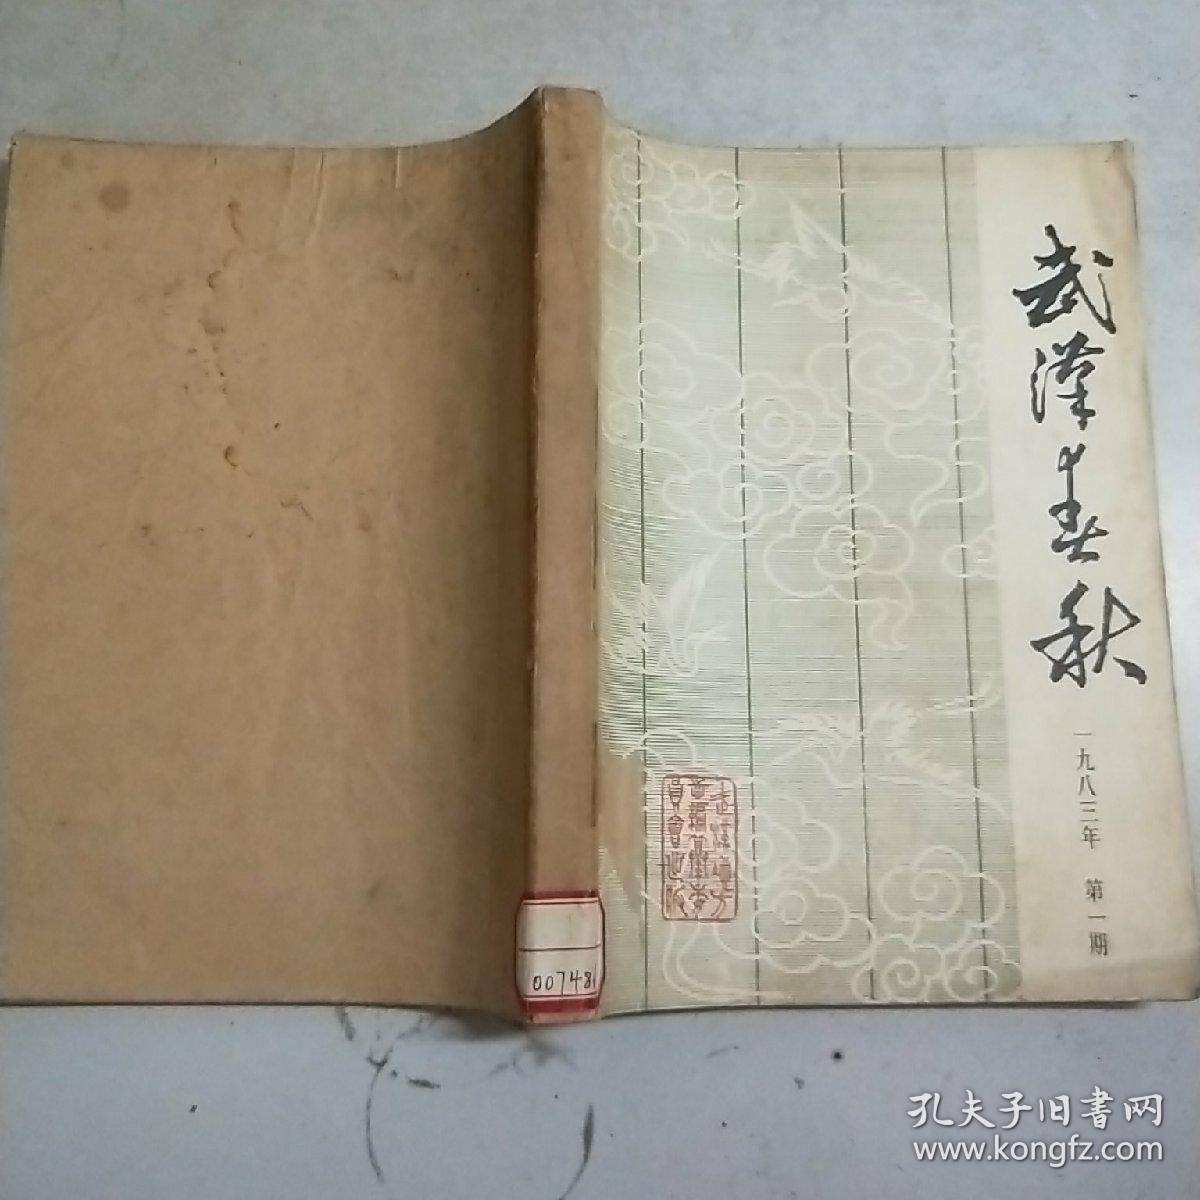 武漢春秋
一九八三年 第一期
007481
孔夫子旧书网
www.kongfz.com